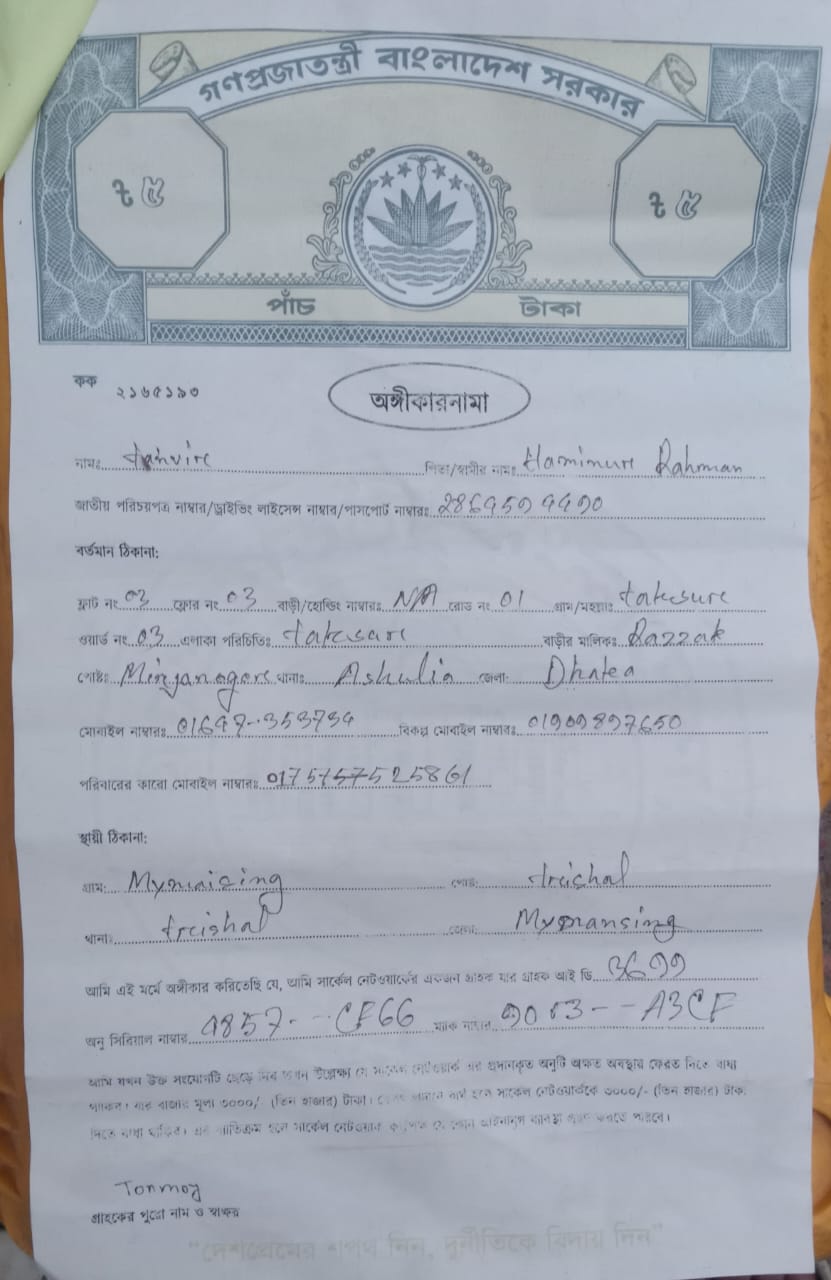 গণপ্রজাতন্ত্রী বাংলাদেশ সরকার
৳ ৫ ৳ ৫
পাঁচ টাকা
কক ২১৬৫১৯৩
অঙ্গীকারনামা
নামঃ tanvire পিতা/স্বামীর নামঃ Haminure Rahman
জাতীয় পরিচয়পত্র নাম্বার/ড্রাইভিং লাইসেন্স নাম্বার/পাসপোর্ট নাম্বারঃ
বর্তমান ঠিকানা:
ফ্লাট নং 03 ফ্লোর নং 03 বাড়ী/হোল্ডিং নাম্বারঃ N/A রোড নং 01 গ্রাম/মহল্লাঃ takesure
ওয়ার্ড নং 03 এলাকা পরিচিতিঃ takesure বাড়ীর মালিকঃ Razzak
পোষ্টঃ Mirzanagore থানাঃ Ashulia জেলা: Dhaka
মোবাইল নাম্বারঃ বিকল্প মোবাইল নাম্বারঃ 01909897650
পরিবারের কারো মোবাইল নাম্বারঃ
স্থায়ী ঠিকানা:
গ্রাম: Mymaising পোষ্ট: treishal
থানা: treishal জেলা: Mymansing
আমি এই মর্মে অঙ্গীকার করিতেছি যে, আমি সার্কেল নেটওয়ার্কের একজন গ্রাহক যার গ্রাহক আই ডি 3699
অনু সিরিয়াল নাম্বার CF66 ম্যাক নাম্বার A3CF
আমি যখন উক্ত সংযোগটি ছেড়ে দিব তখন উল্লেখ্য যে সার্কেল নেটওয়ার্ক এর প্রদানকৃত অনুটি অক্ষত অবস্থায় ফেরত দিতে বাধ্য
থাকিব। যার বাজার মূল্য ৩০০০/- (তিন হাজার) টাকা। হলে সার্কেল নেটওয়ার্ককে ৩০০০/- (তিন হাজার) টাকা
দিতে বাধ্য থাকিব। এর ব্যতিক্রম হলে সার্কেল নেটওয়ার্ক যে কোন আইনানুগ ব্যবস্থা করতে পারবে।
Tonmoy
গ্রাহকের পুরো নাম ও স্বাক্ষর
"দেশপ্রেমের শপথ নিন, দুর্নীতিকে বিদায় দিন"